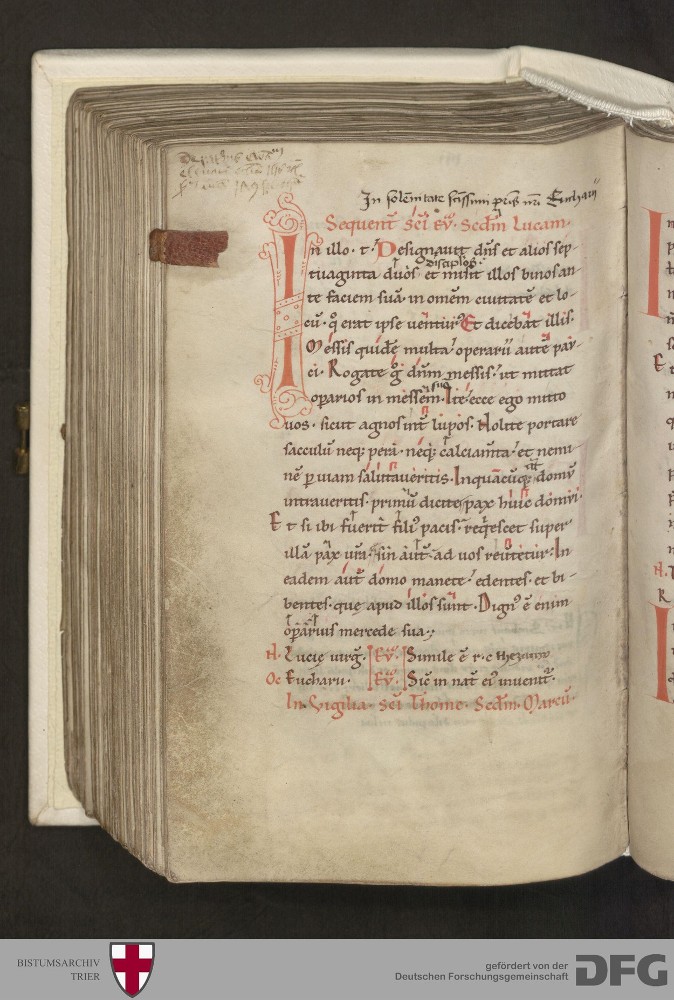 In solẽnitate sc̃issimi pr̃is nr̃i Eucharii
Sequent̃ sc̃i eṽ. Secdm̃ Lucam.
In illo. t. Designavit dñs et alios sep-
tuaginta duos et misit illos binos an-
discip̃los
te faciem suã. in omẽm civitatẽ et lo-
cũ. q̃ erat ipse venturꝰ. Et dicebat illis.
Messis quidẽ multa. operarii autẽ pau-
ci. Rogate g̊ dñm messis. ut mittat
operarios in messem suã. Ite ecce ego mitto
vos. sicut agnos int̃ lupos. Nolite portare
sacculũ neq; perã. neq; calciam̃ta. et nemi-
nẽ p viam salutaveritis. Inquacũq; domũ
intraveritis. primũ dicite pax huic domui.
Et si ibi fuerit filiꝰ pacis. req̃escet super
illã pax vr̃a. sin aut̃. ad vos revertetur. In
eadem aut̃ domo manete. edentes. et bi-
bentes. que apud illos sunt. Dignꝰ ẽ enim
operarius mercede sua.
N. Lucie virg̃. Eṽ. Simile ẽ r. c. thezauro
Oc̃ Eucharii. Eṽ. Sic̃ in nat̃ eiꝰ invenit̃.
In Vigilia. sc̃i Thome. Secdm̃. Marcũ.
BISTUMSARCHIV
TRIER
gefördert von der
Deutschen Forschungsgemeinschaft
DFG